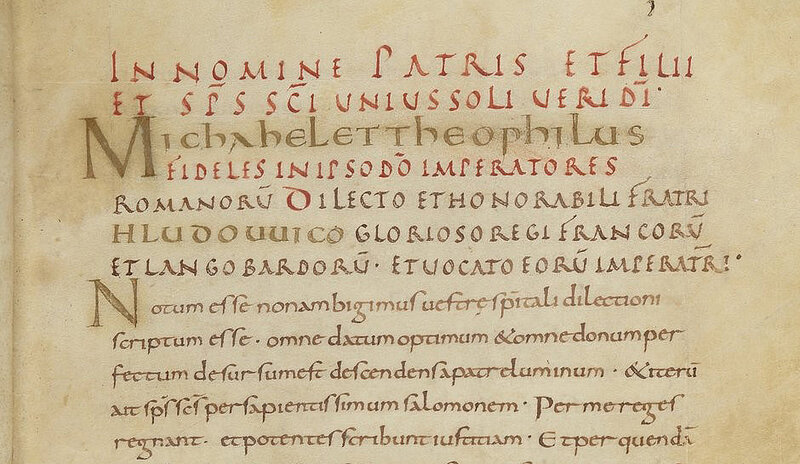 IN NOMINE PATRIS ET FILII
ET SP̄S SC̄I UNIUS SOLI UERI DĪ·
MICHAHEL ET THEOPHILUS
FIDELES IN IPSO DŌ IMPERATORES
ROMANORŪ DILECTO ET HONORABILI FRATRI
HLUDOUUICO GLORIOSO REGI FRANCORŪ
ET LANGOBARDORŪ· ET UOCATO EORŪ IMPERATR̄I·
Notum esse non ambigimus uestrę spīitali dilectioni
scriptum esse· omne datum optimum & omne donum per
fectum desursum est descendens a patre luminum· & iterū
ait sp̄s sc̄s per sapientissimum salomonem· Per me reges
regnant· et potentes scribunt iustitiam· Et per quendā